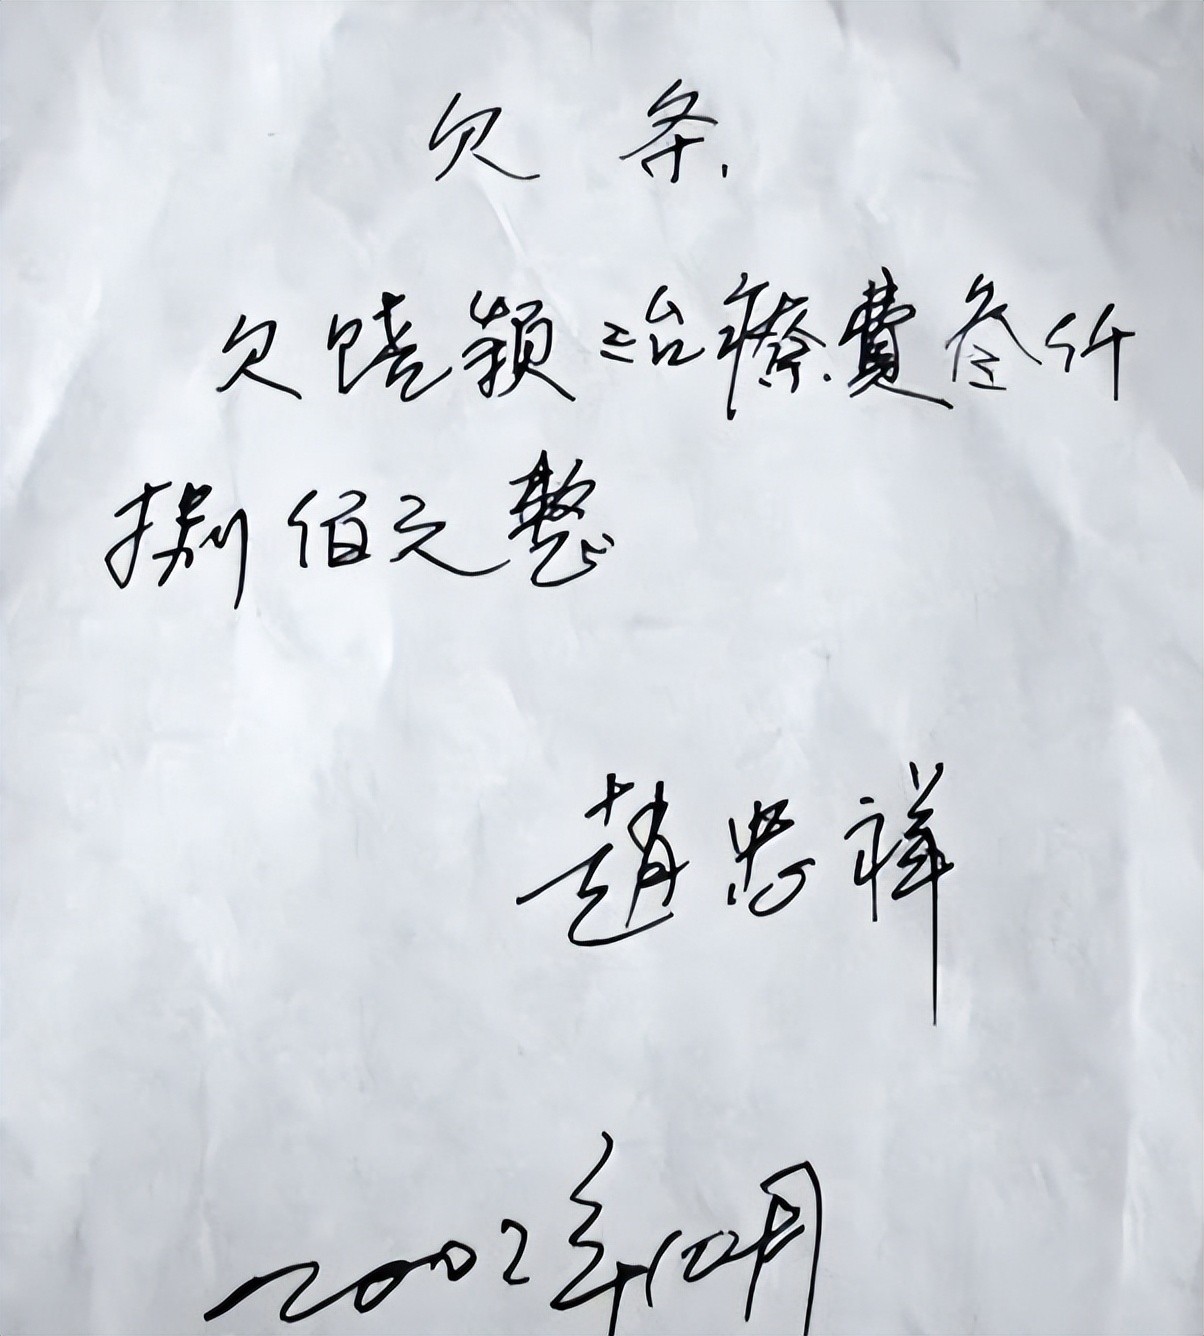 欠条.
欠饶颖治療費叁仟
捌佰元整
趙忠祥
2002年10月